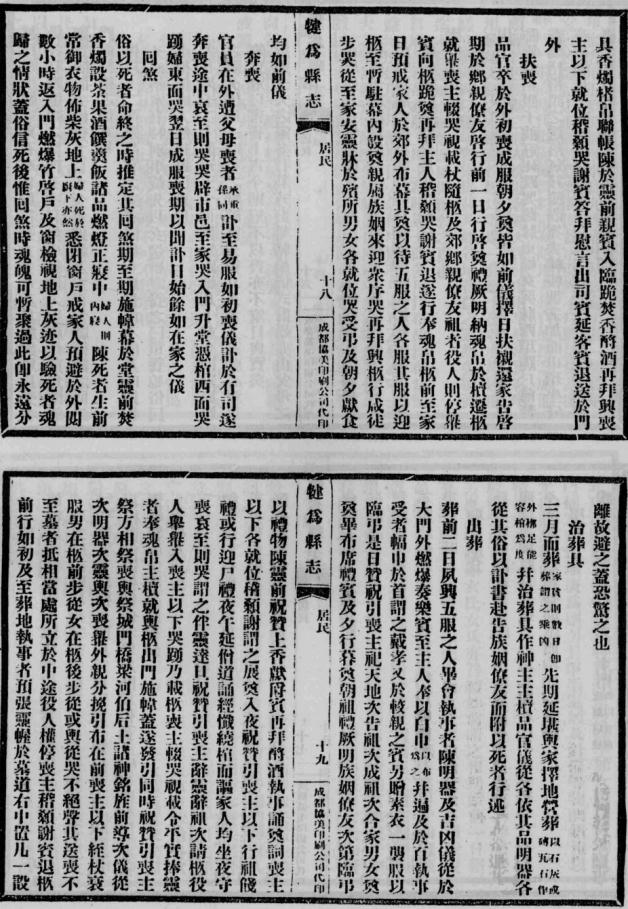 具香燭楮帛聯帳陳於靈前親賓入臨跪焚香酹酒再拜興喪
主以下就位稽顙哭謝賓答拜慰言出司賓延客賓退送於門
外
扶喪
品官卒於外初喪成服朝夕奠皆如前儀擇日扶櫬還家告啓
期於鄉親僚友啓行前一日行啓奠禮厥明納魂帛於櫝遷柩
就轝喪主輟哭視載杖隨柩及郊鄉親僚友祖者役人則停轝
賓向柩跪奠再拜主人稽顙哭謝賓退遂行奉魂帛柩前至家
日預戒家人於郊外布幕具奠以待五服之人各服其服以迎
柩至暫駐幕內設奠親屬族姻來迎衆序哭再拜興柩行咸徒
步哭從至家安靈牀於殯所男女各就位哭受弔及朝夕獻食
均如前儀
奔喪
官員在外遭父母喪者承重孫同訃至易服如初喪儀訃於有司遂
奔喪途中哀至則哭哭辟市邑至家哭入門升堂憑棺西面哭
踴婦東面哭翌日成服喪期以聞訃日始餘如在家之儀
回煞
俗以死者命終之時推定其回煞期至期施幃幕於堂靈前焚
香燭設茶果酒饌羹飯諸品燃燈正寢中婦人則內寢陳死者生前
常御衣物佈柴灰地上婦人死於廚下亦然悉閉窗戶戒家人預避於外閱
數小時返入門燃爆竹啓戶及窗檢視地上灰迹以驗死者魂
歸之情狀蓋俗信死後惟回煞時魂魄可暫聚過此卽永遠分
犍爲縣志
居民
十八
成都協美印刷公司代印
離故避之蓋恐驚之也
治葬具
三月而葬家貧則數日卽葬謂之乘凶先期延堪輿家擇地營葬以石灰或磚瓦石作
外槨足能容棺爲度幷治葬具作神主主櫝品官儀從各依其品明器各
從其俗以訃書赴告族姻僚友而附以死者行述
出葬
葬前二日夙興五服之人畢會執事者陳明器及吉凶儀從於
大門外燃爆奏樂賓至主人奉以白巾以布爲之幷遍及於百執事
受者幅巾於首謂之戴孝又於較親之賓另贈素衣一襲服以
臨弔是日贊祝引喪主祀天地次告祖次成祖次合家男女奠
奠畢布席禮賓及夕行暮奠朝祖禮厥明族姻僚友次第臨弔
以禮物陳靈前祝贊上香獻爵賓再拜酹酒執事誦奠詞喪主
以下各就位稽顙謝謂之展奠入夜祝贊引喪主以下行祖餞
禮或行迎尸禮夜午延僧道誦經懺繞棺面謳家人均坐夜守
喪哀至則哭謂之伴靈達旦祝贊引喪主辭靈辭祖次請柩役
人舉轝入喪主以下哭踴乃載柩喪主輟哭視載令平實捧靈
者奉魂帛主櫝就輿柩出門施幃蓋遂發引同時祝贊引喪主
祭方相祭喪輿祭城門橋梁河伯后土諸神銘旌前導次儀從
次明器次靈輿次喪轝外親分挽引布在前喪主以下絰杖衰
服男在柩前步從女在柩後步從或輿從哭不絕聲其送喪不
至墓者抵相當處所立於中途役人權停喪主稽顙謝賓退柩
前行如初及至葬地執事者預張靈幄於墓道右中置几一設
犍爲縣志
居民
十九
成都協美印刷公司代印